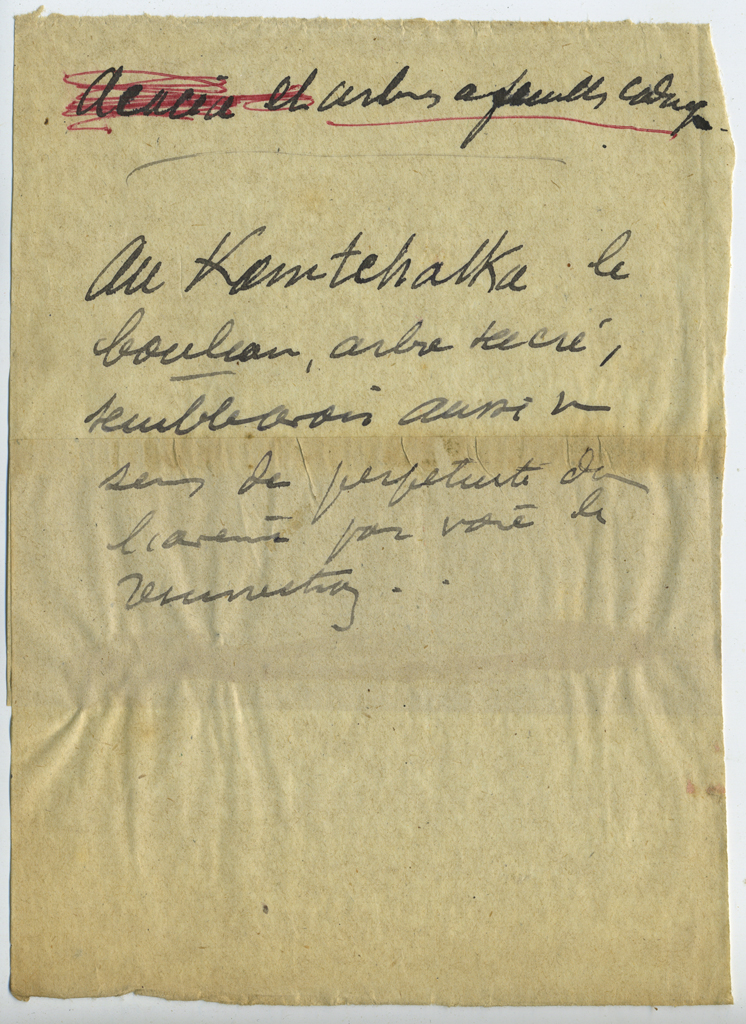 Acacia et arbres a feuilles caduq.
Au Kamtchatka le
bouleau, arbre sacré,
semble avoir aussi un
sens de perpétuité de
par voie de
résurrection . .